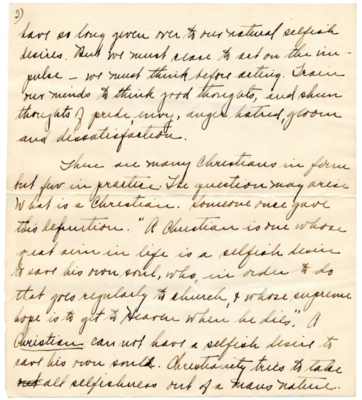 3)
have so long given over to our natural selfish
desires. But we must cease to act on the im-
pulse – we must think before acting. Train
our minds to think good thoughts, and shun
thoughts of pride envy, anger hatred, gloom
and dissatisfaction.
There are many Christians in form
but few in practice. The question may arise
What is a Christian. Someone once gave
this definition. "A Christian is one whose
great sin in life is a selfish desire
to save his own soul, who, in order to do
that goes regularly to church & whose supreme
hope is to get to Heaven when he dies." A
Christian can not have a selfish desire to
save his own soul. Christianity tries to take
all selfishness out of a mans nature.